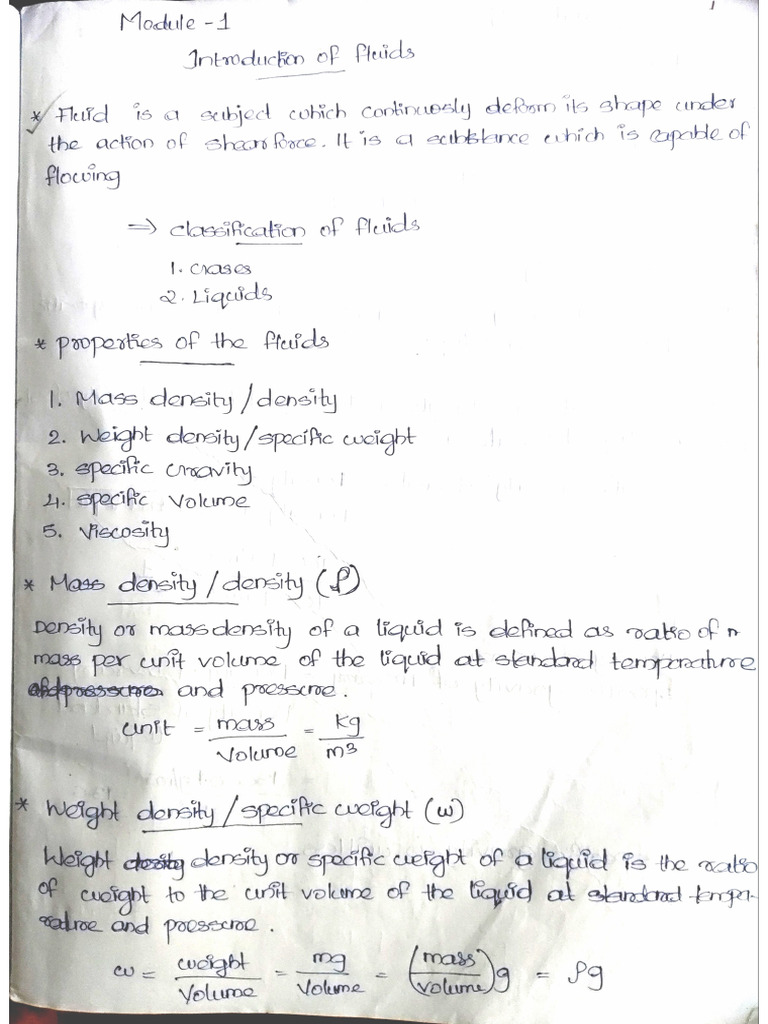 1
Module -1
Introduction of fluids
* Fluid is a subject which continuosly deform its shape under
the action of shear force. It is a substance which is capable of
flowing
⇒ classification of fluids
1. Gases
2. Liquids
* properties of the fluids
1. Mass density / density
2. Weight density / specific weight
3. specific Gravity
4. specific volume
5. Viscosity
* Mass density / density (ρ)
Density or mass density of a liquid is defined as ratio of
mass per unit volume of the liquid at standard temperature
and pressure.
unit = mass / volume = kg / m³
* Weight density / specific weight (w)
Weight density or specific weight of a liquid is the ratio
of weight to the unit volume of the liquid at standard tempe-
rature and pressure.
w = weight / volume = mg / volume = (mass / volume) g = ρg